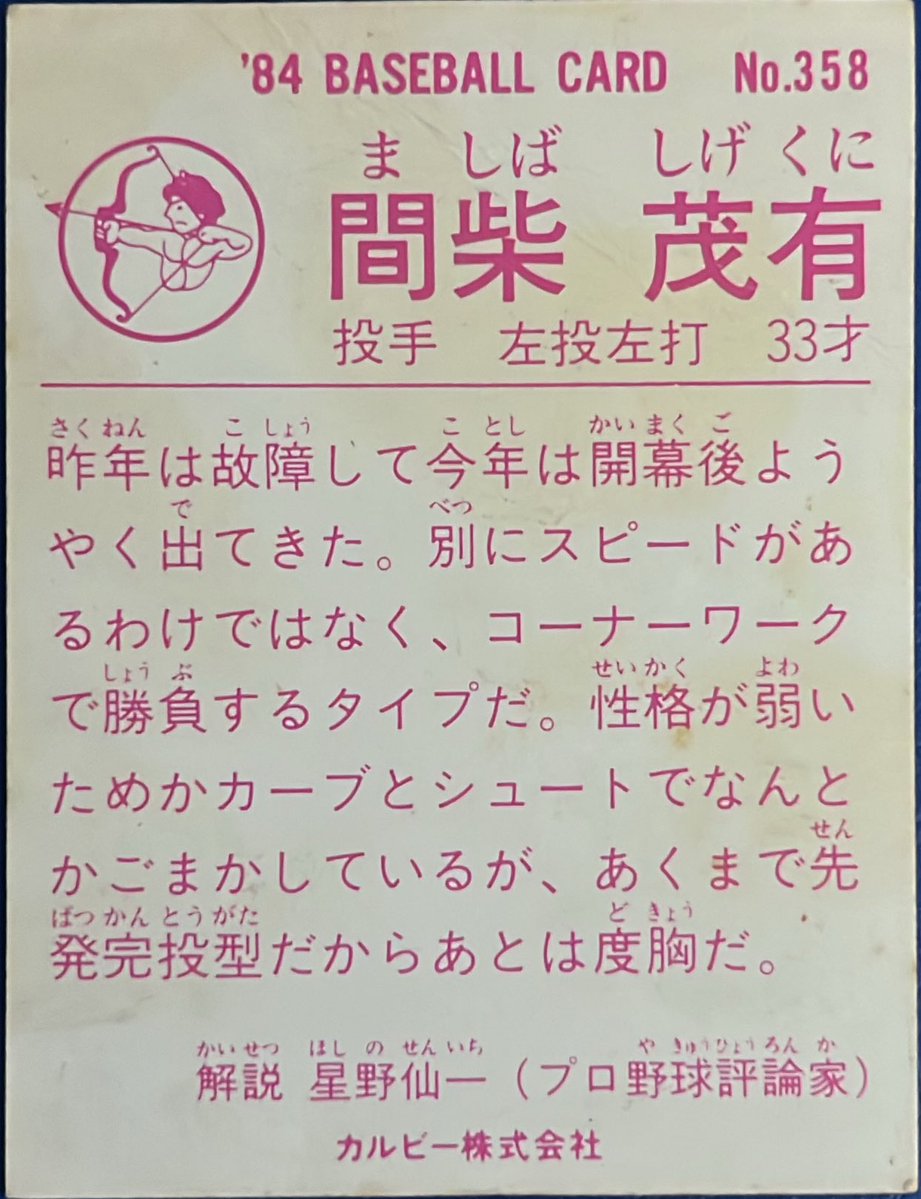 '84 BASEBALL CARD No.358
ま しば しげ くに
間柴 茂有
投手 左投左打 33才
さく ねん こ しょう こ とし かい まく ご
昨年は故障して今年は開幕後よう
で べつ
やく出てきた。別にスピードがあ
るわけではなく、コーナーワーク
しょう ぶ せい かく よわ
で勝負するタイプだ。性格が弱い
ためかカーブとシュートでなんと
せん
かごまかしているが、あくまで先
ぱつ かん とう がた ど きょう
発完投型だからあとは度胸だ。
かい せつ ほし の せん いち や きゅう ひょう ろん か
解説 星野仙一(プロ野球評論家)
カルビー株式会社